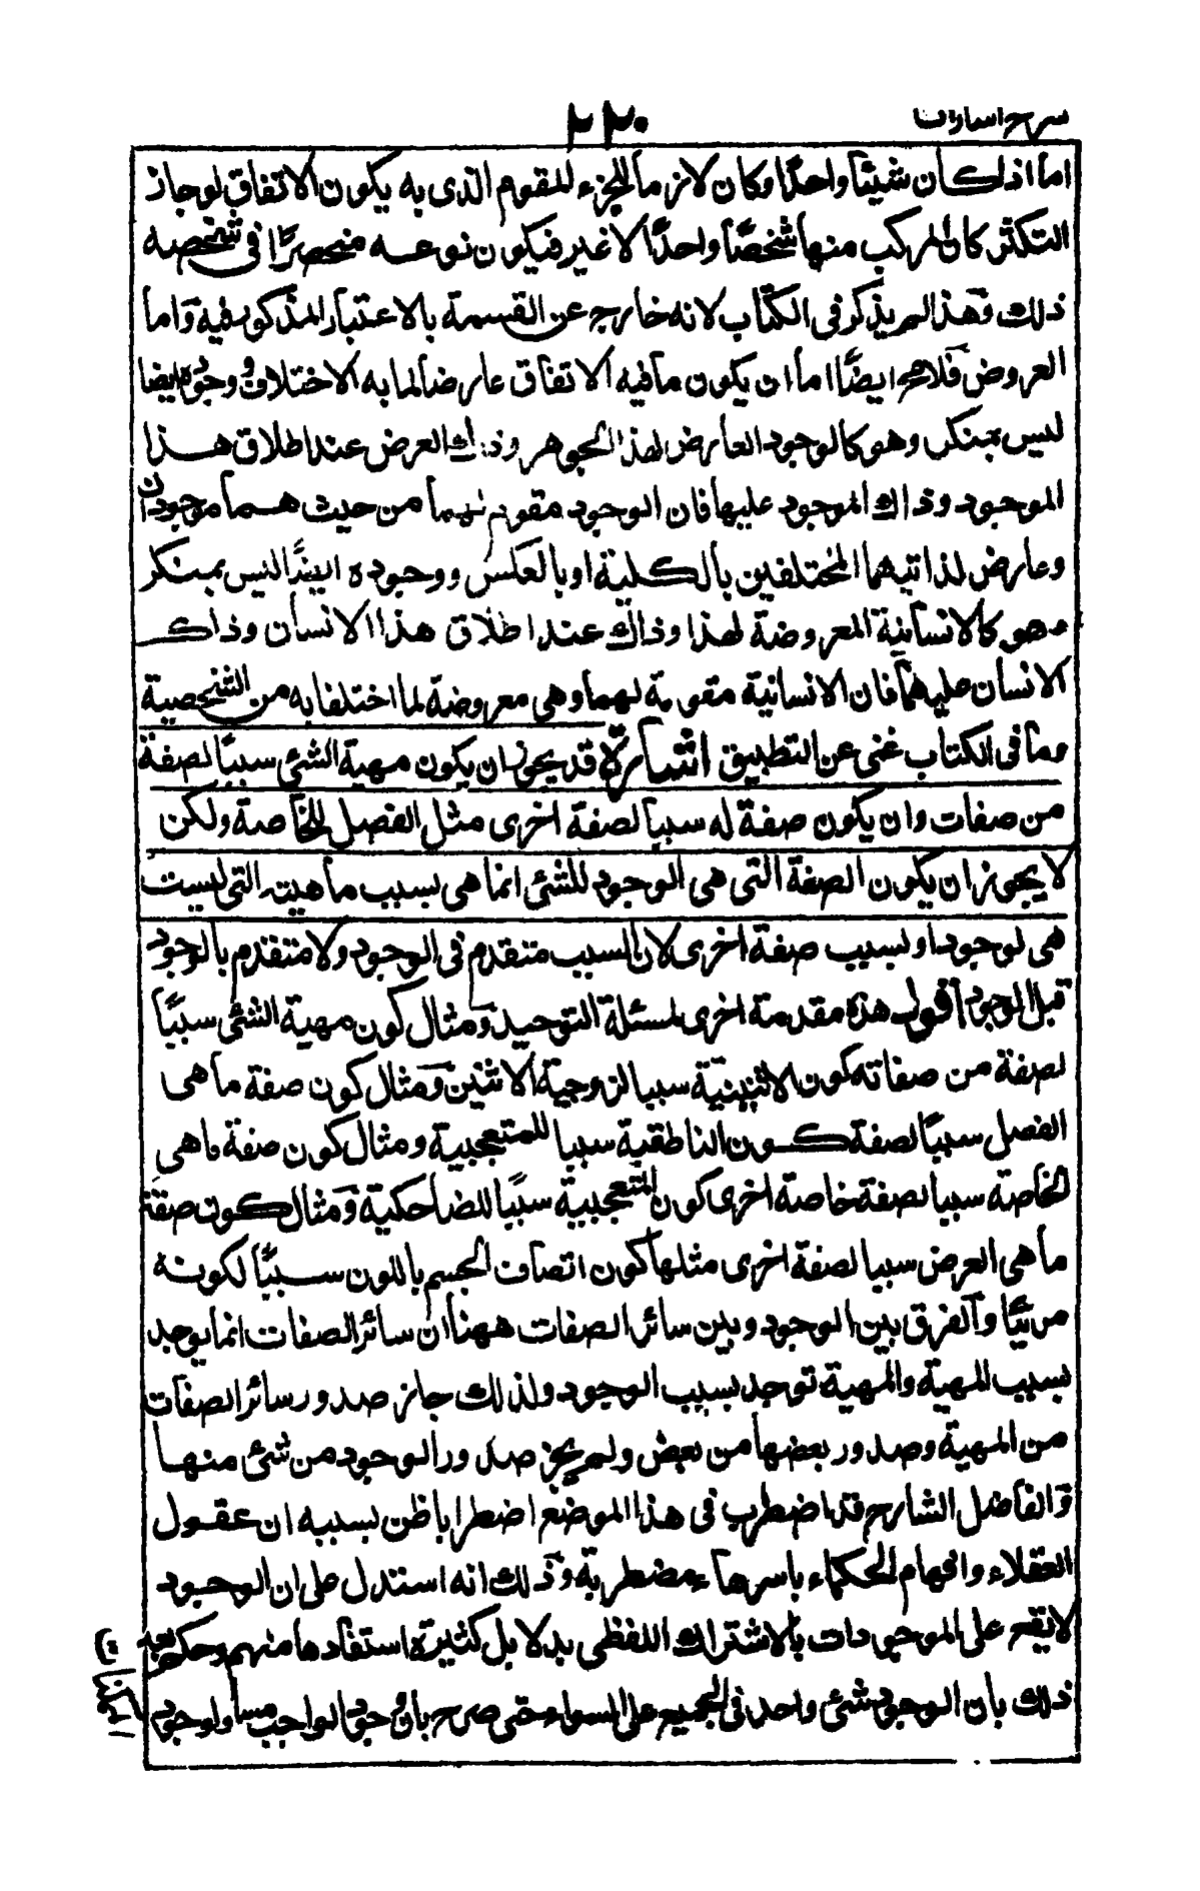 شرح اشارات ٢٢٠
اما اذا كان شيئاً واحداً وكان لازماً للجزء المقوم الذى به يكون الاتفاق لو جاز
التكثر كان المركب منها شخصاً واحداً لا غير فيكون نوعه منحصراً فى شخصه
ذلك وهذا لم يذكر فى الكتاب لانه خارج عن القسمة بالاعتبار المذكور فيه واما
العروض فلا يخ ايضاً اما ان يكون ما فيه الاتفاق عارضاً لما به الاختلاف ووجوده ايضا
ليس بمنكر وهو كالوجود العارض لهذا الجوهر وذاك العرض عند اطلاق هذا
الموجود وذاك الموجود عليها فان الوجود مقوم لهما من حيث هما موجودان
وعارض لذاتيهما المختلفين بالكلية او بالعكس ووجوده ايضاً ليس بمنكر
وهو كالانسانية المعروضة لهذا وذاك عند اطلاق هذا الانسان وذاك
الانسان عليهما فان الانسانية مقومة لهما وهى معروضة لما اختلفا به من الشخصية
وما فى الكتاب غنى عن التطبيق اشارة قد يجوز ان يكون مهية الشئ سبباً لصفة
من صفات وان يكون صفة له سبباً لصفة اخرى مثل الفصل للخاصة ولكن
لا يجوز ان يكون الصفة التى هى الوجود للشئ انما هى بسبب ماهيته التى ليست
هى لوجود او بسبب صفة اخرى لان السبب متقدم فى الوجود ولا متقدم بالوجود
قبل الوجود اقول هذه مقدمة اخرى لمسئلة التوحيد ومثال كون مهية الشئ سبباً
لصفة من صفاته كون الاثنينية سببا لزوجية الاثنين ومثال كون صفة ما هى
الفصل سبباً لصفة كون الناطقية سببا للمتعجبية ومثال كون صفة ما هى
الخاصة سببا لصفة خاصة اخرى كون المتعجبية سبباً للضاحكية ومثال كون صفة
ما هى العرض سببا لصفة اخرى مثلها كون اتصاف الجسم باللون سبباً لكونه
مرئيّاً والفرق بين الوجود وبين سائر الصفات ههنا ان سائر الصفات انما يوجد
بسبب المهية والمهية توجد بسبب الوجود ولذلك جاز صدور سائر الصفات
من المهية وصدور بعضها من بعض ولم يجز صدور الوجود من شئ منها
والفاضل الشارح قد اضطرب فى هذا الموضع اضطرابا ظن بسببه ان عقول
العقلاء وافهام الحكماء باسرها مضطربة وذلك انه استدل على ان الوجود
لا يقع على الموجودات بالاشتراك اللفظى بدلائل كثيرة استفادها منهم وحكم بعد
ذلك بان الوجود شئ واحد فى الجميع على السواء حتى صرح بان وجود الواجب مساو لوجود
الممكنات